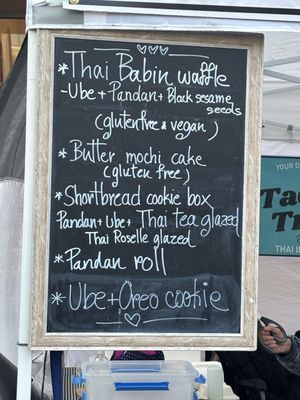 * Thai Babin waffle
- Ube + Pandan + Black sesame
seeds
(gluten free & vegan)
* Butter mochi cake
(gluten free)
* Shortbread cookie box
Pandan + Ube + Thai tea glazed
Thai Roselle glazed
* Pandan roll
* Ube + Oreo cookie
YOUR D
THAI I